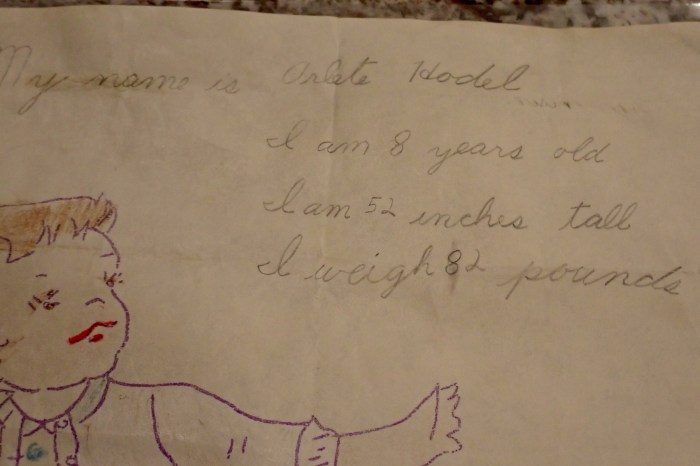 My name is Orlete Hodel
I am 8 years old
I am 52 inches tall
I weigh 82 pounds